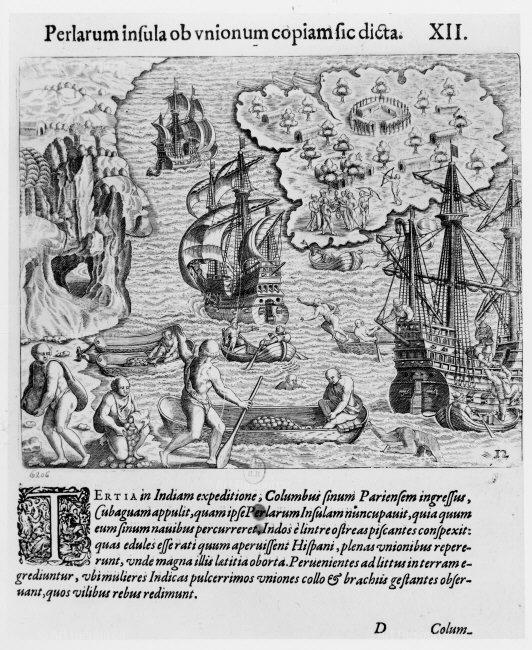 Perlarum insula ob vnionum copiam sic dicta. XII.
12
6206
TERTIA in Indiam expeditione, Columbus sinum Pariensem ingressus,
Cubaguam appulit, quam ipse Perlarum Insulam nuncupauit, quia quum
eum sinum nauibus percurreret, Indos è lintre ostreas piscantes conspexit:
quas edules esse rati quum aperuissent Hispani, plenas vnionibus repere-
runt, vnde magna illis lætitia oborta. Peruenientes ad littus in terram e-
grediuntur, vbi mulieres Indicas pulcerrimos vniones collo & brachiis gestantes obser-
uant, quos vilibus rebus redimunt.
D Colum-